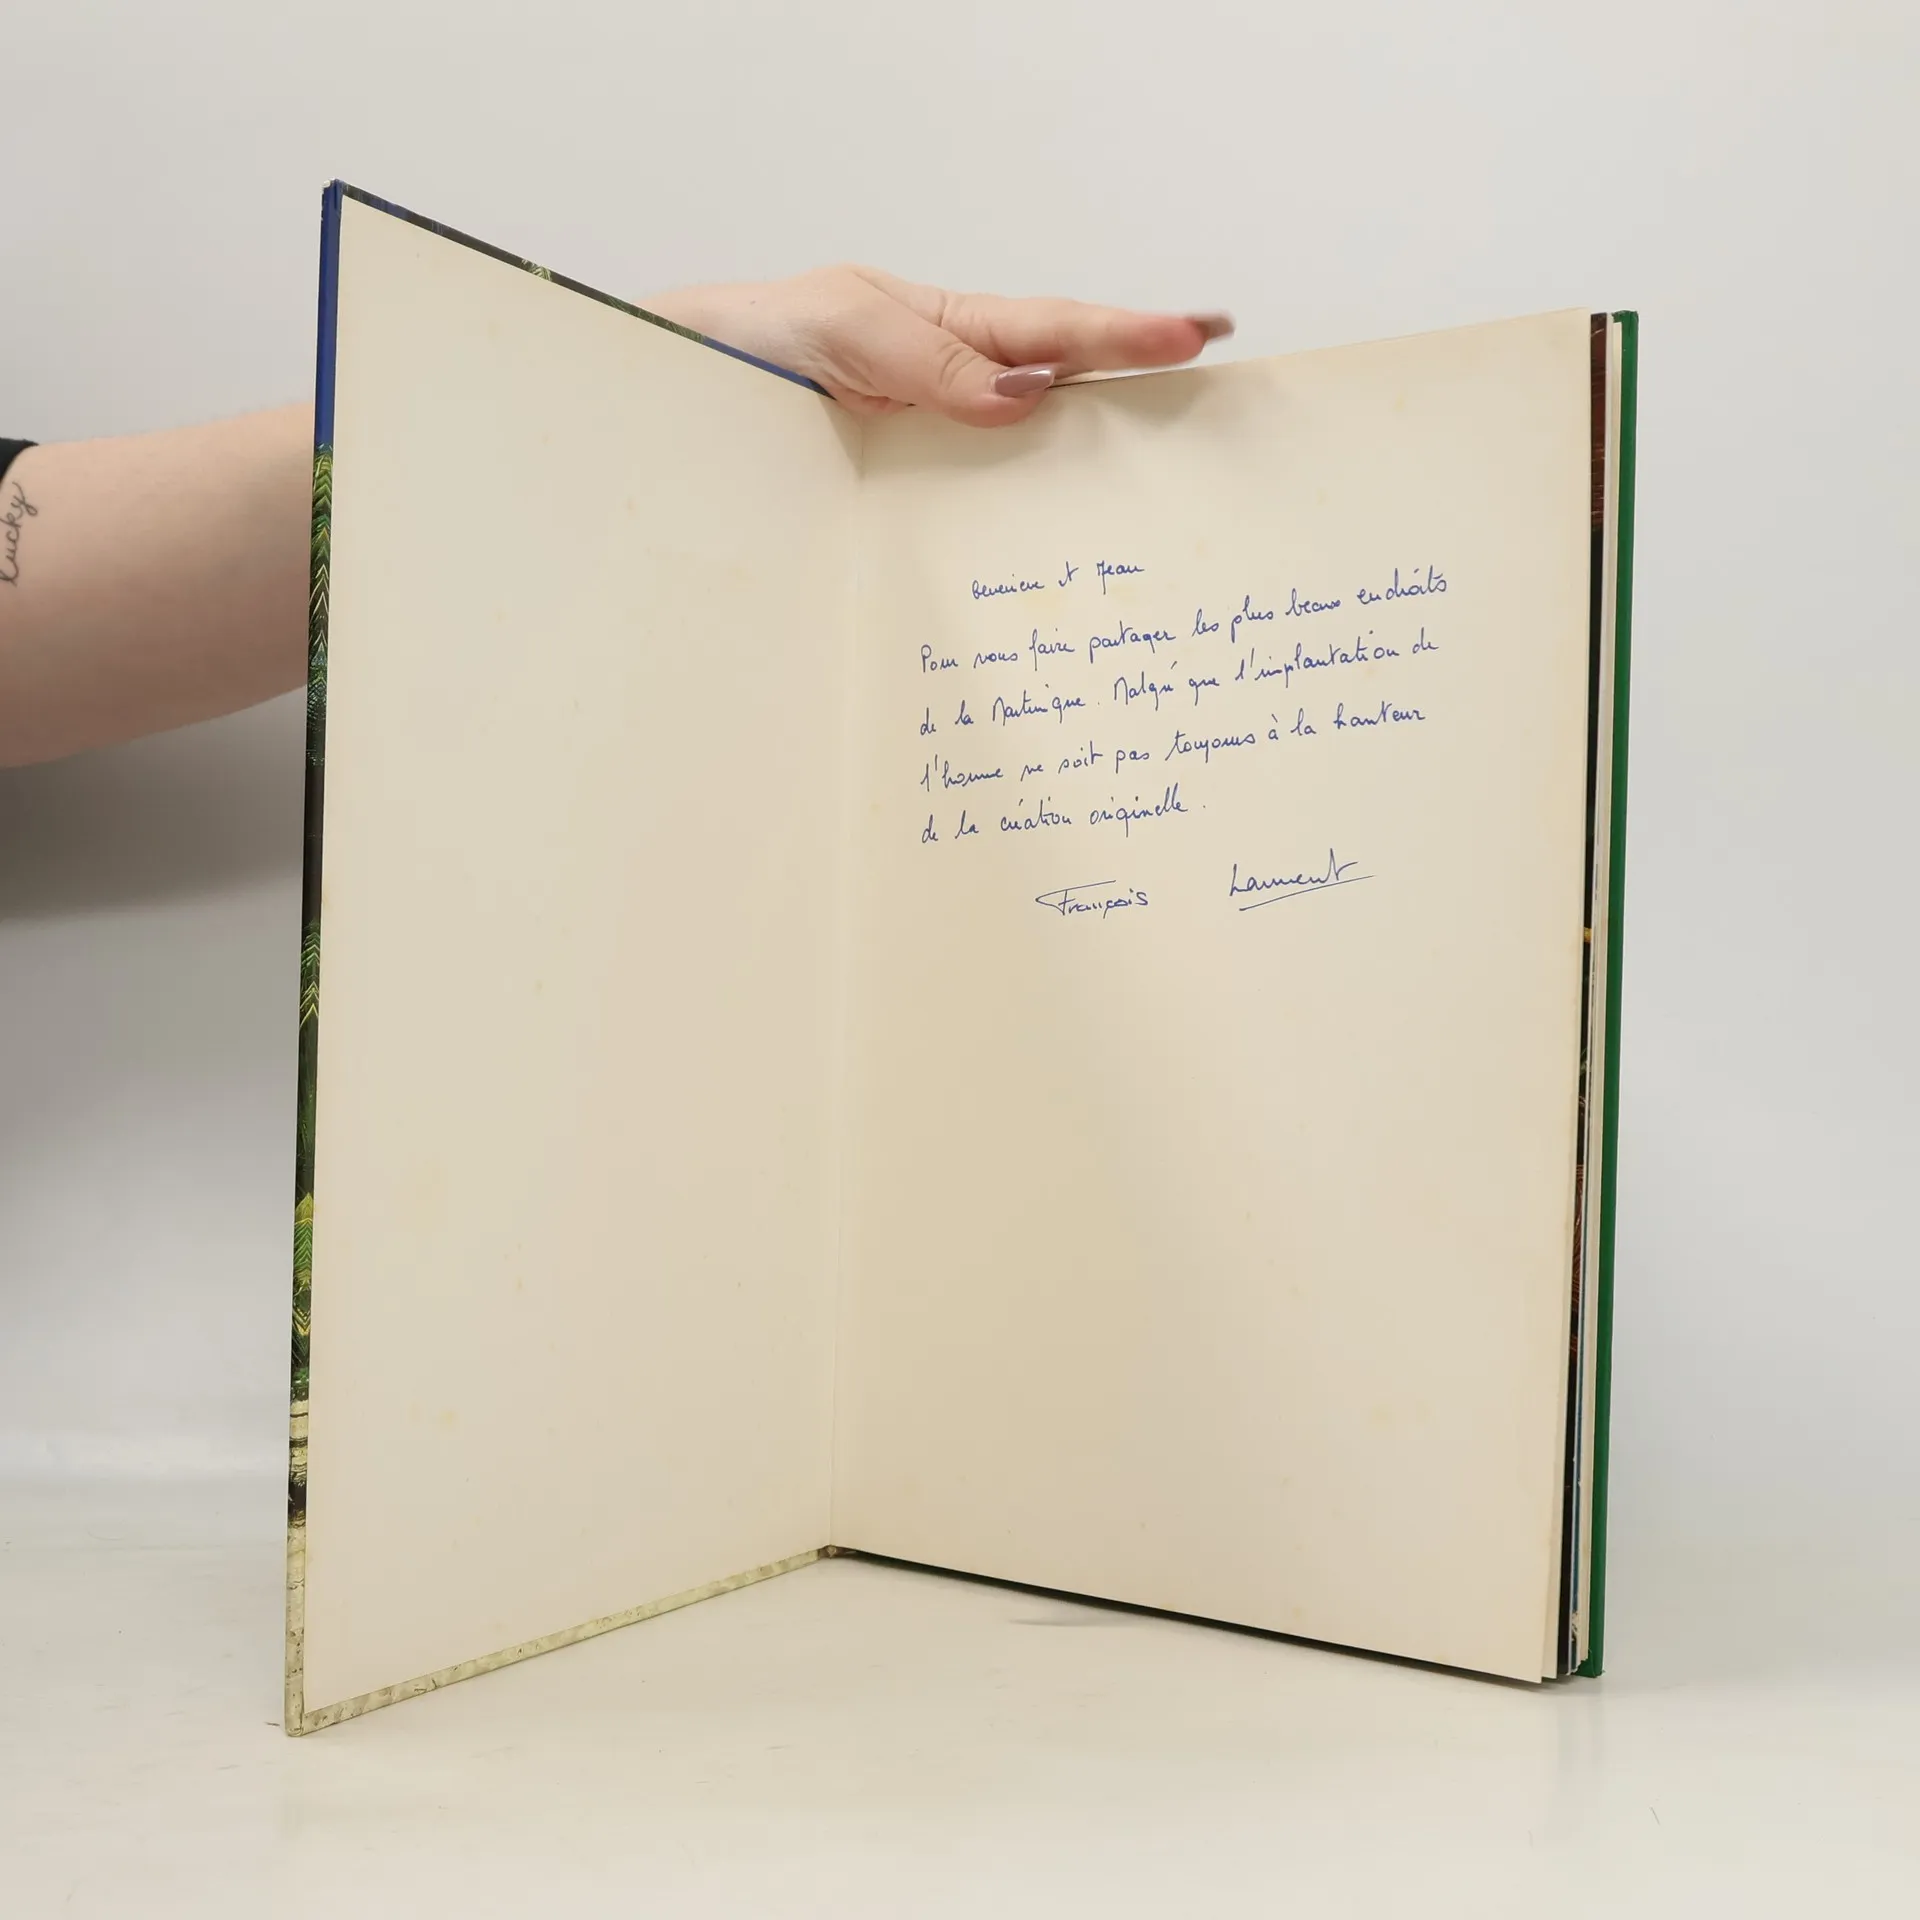 lucky
Geneviève et Jean
Pour vous faire partager les plus beaux endroits
de la Martinique. Malgré que l'implantation de
l'homme ne soit pas toujours à la hauteur
de la création originelle.
François Laurent